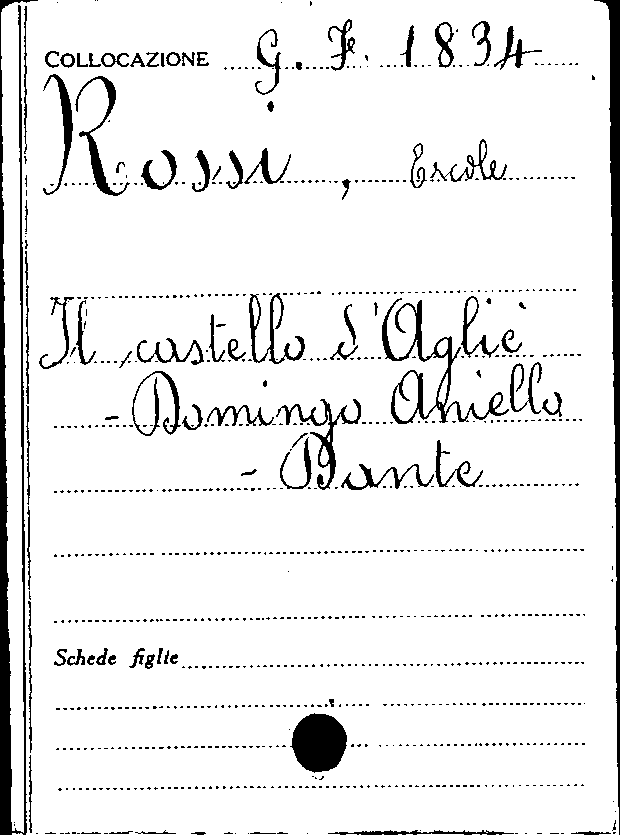 COLLOCAZIONE G. F. 1834
Rossi, Ercole
Il castello d'Agliè
- Domingo Aniello
- Dante
Schede figlie